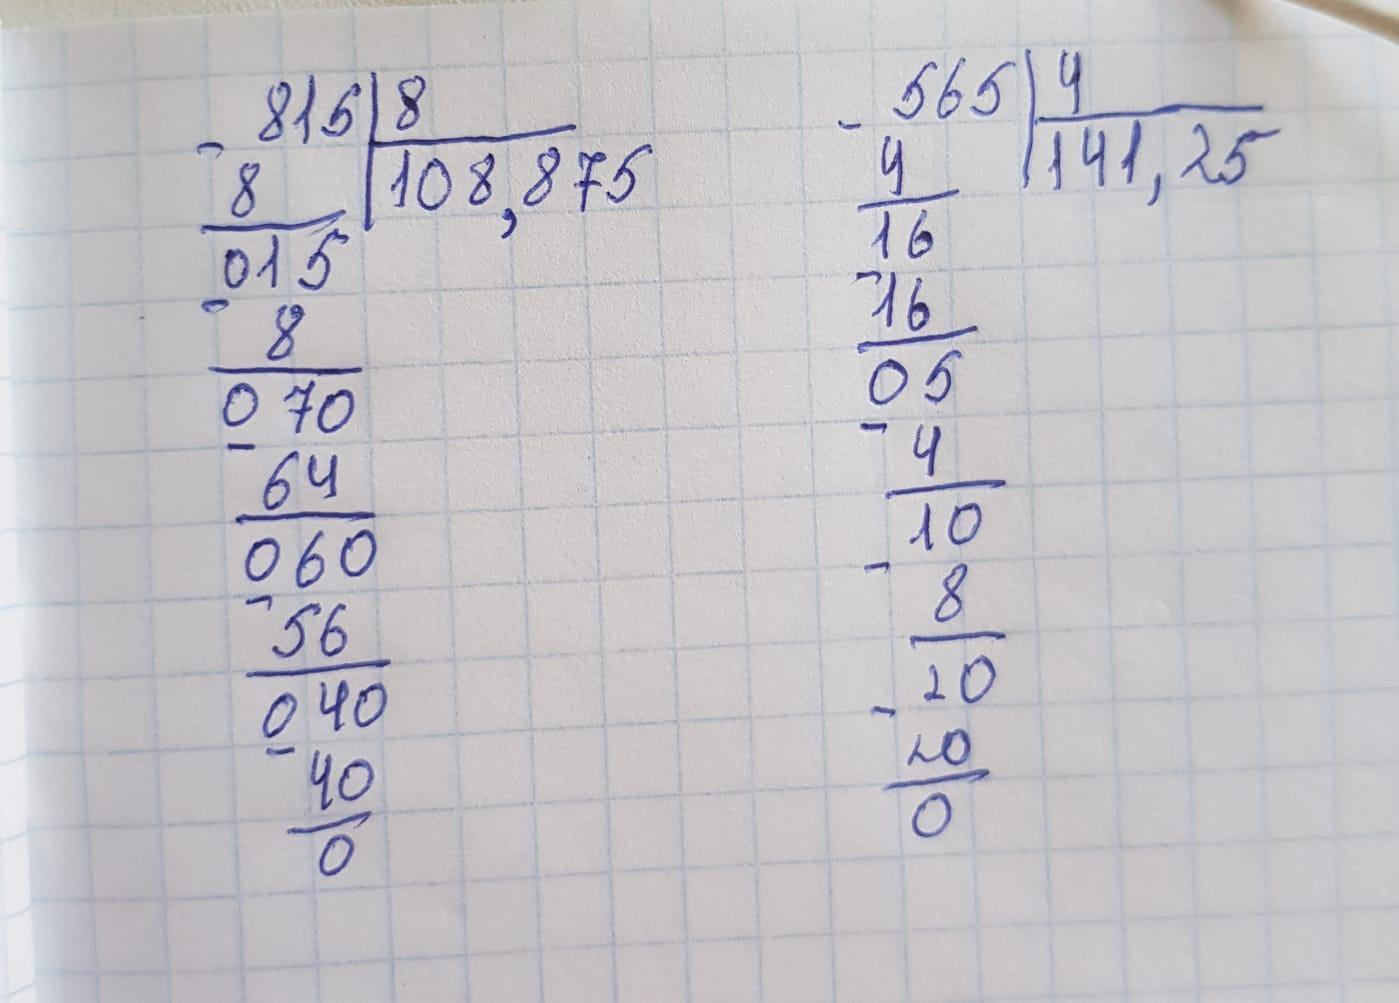 - 815 | 8
8 | 108,875
015
- 8
070
- 64
060
- 56
040
- 40
0
- 565 | 4
4 | 141,25
16
- 16
05
- 4
10
- 8
20
- 20
0